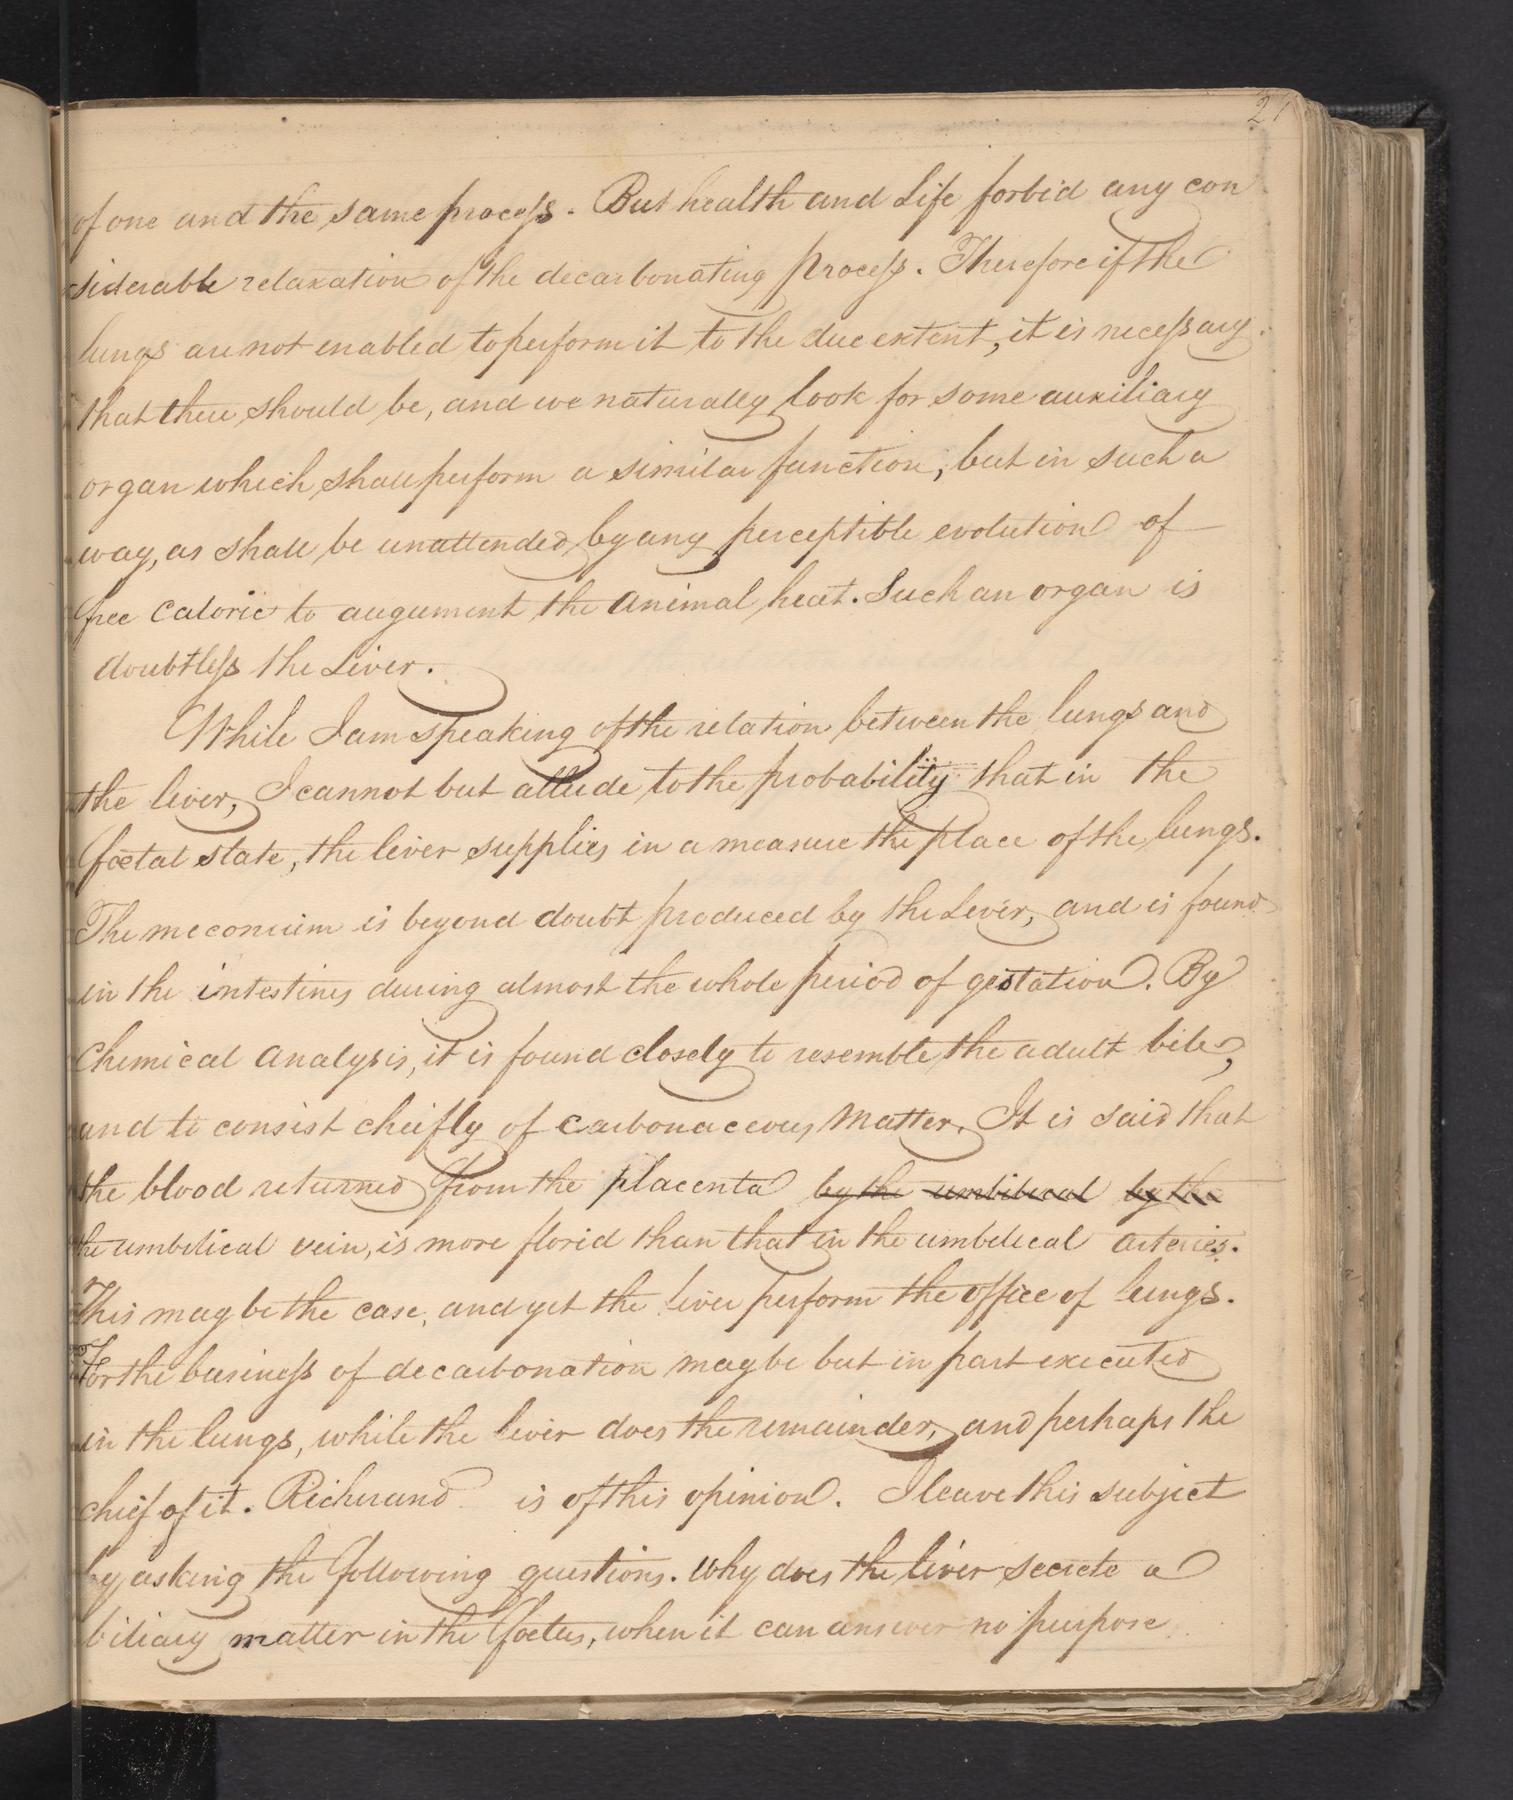 21
of one and the same process. But health and Life forbid any con
siderable relaxation of the decarbonating process. Therefore if the
lungs are not enabled to perform it to the due extent, it is necessary
that there should be, and we naturally look for some auxiliary
organ which shall perform a similar function, but in such a
way, as shall be unattended by any perceptible evolution of
free caloric to augument the animal heat. Such an organ is
doubtless the Liver.
While I am speaking of the relation between the lungs and
the liver, I cannot but allude to the probability that in the
foetal state, the liver supplies in a measure the place of the lungs.
The meconium is beyond doubt produced by the Liver, and is found
in the intestines during almost the whole period of gestation. By
Chemical analysis, it is found closely to resemble the adult bile,
and to consist chiefly of carbonaceous matter. It is said that
the blood returned from the placenta by the umbilical by the
the umbilical vein, is more florid than that in the umbilical arteries.
This may be the case, and yet the liver perform the office of lungs.
For the business of decarbonation may be but in part executed
in the lungs, while the liver does the remainder, and perhaps the
chief of it. Richerand is of this opinion. I leave this subject
by asking the following questions. Why does the liver secrete a
biliary matter in the foetus, when it can answer no purpose